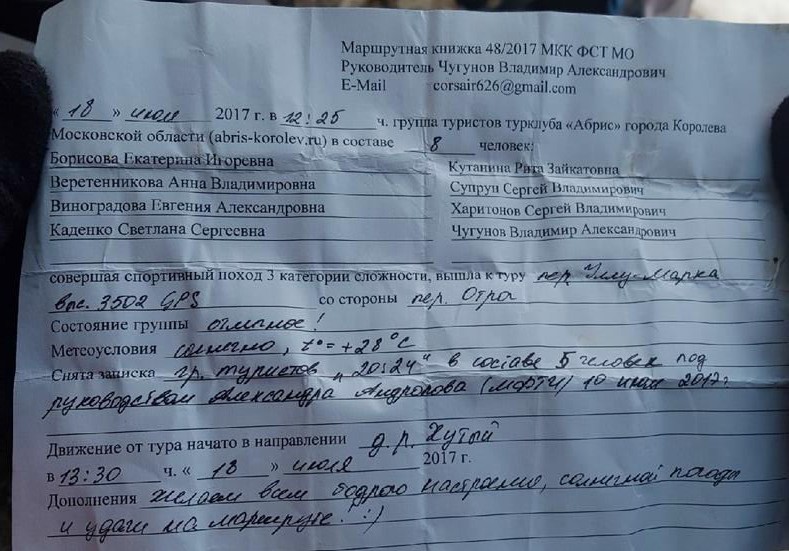 Маршрутная книжка 48/2017 МКК ФСТ МО
Руководитель Чугунов Владимир Александрович
E-Mail corsair626@gmail.com
« 18 » июля 2017 г. в 12:25 ч. группа туристов турклуба «Абрис» города Королева
Московской области (abris-korolev.ru) в составе 8 человек:
Борисова Екатерина Игоревна Кутанина Рита Зайкатовна
Веретенникова Анна Владимировна Супрун Сергей Владимирович
Виноградова Евгения Александровна Харитонов Сергей Владимирович
Каденко Светлана Сергеевна Чугунов Владимир Александрович
совершая спортивный поход 3 категории сложности, вышла к туру пер. Уллу-Марка
выс. 3502 GPS со стороны пер. Отра
Состояние группы отличное!
Метеоусловия солнечно, t°=+28°C
Снята записка гр. туристов „20:24“ в составе 5 человек под
руководством Александра Андропова (МФТИ) 10 июля 2017г
Движение от тура начато в направлении д.р. Хутый
в 13:30 ч. « 18 » июля 2017 г.
Дополнения желаем всем бодрого настроения, солнечной погоды
и удачи на маршруте! :)